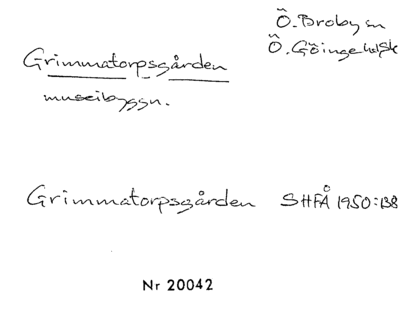 Ö. Broby sn
Ö. Göinge hd Sk
Grimmatorpsgården
museibyggn.
Grimmatorpsgården SHFÅ 1950:138
Nr 20042